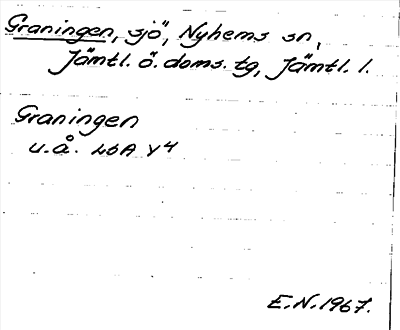 Graningen, sjö, Nyhems sn,
Jämtl. ö. doms. tg, Jämtl. l.
Graningen
u.å. LSA Y4
E.N. 1967.